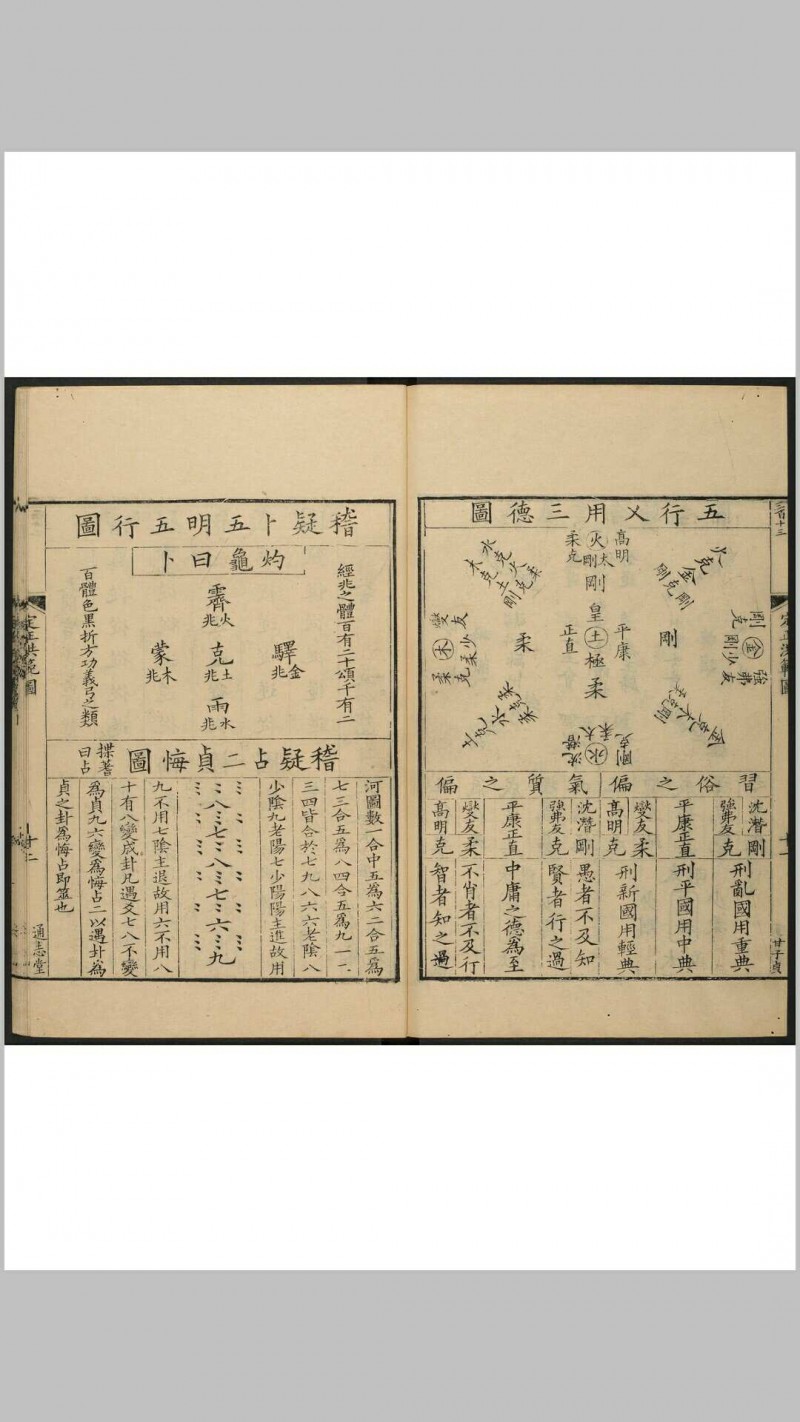 五行乂用三德圖
高明
柔克
火
太剛
剛
皇
土
極
柔
平康
正直
太柔
水
沈潛
剛克
剛
金
少剛
剛克
彊弗友
柔
木
少柔
柔克
燮友
火克金
剛克剛
金克木
剛克柔
水克火
柔克剛
木克土
習俗之偏
氣質之偏
沈潛剛
彊弗友克
刑亂國用重典
平康正直
刑平國用中典
燮友柔
高明克
刑新國用輕典
沈潛剛
彊弗友克
愚者不及知
賢者行之過
平康正直
中庸之德為至
燮友柔
高明克
不肖者不及行
智者知之過
三百十三
定正洪範圖
十一
甘子貞
稽疑卜五明五行圖
灼龜曰卜
經兆之體百有二十頌千有二
百體色黑折方功義弓之類
驛金兆
霽火兆
克土兆
雨水兆
蒙木兆
稽疑占二貞悔圖
揲蓍曰占
河圖數一合中五為六二合五為
七三合五為八四合五為九一二
三四皆合於七九八六六老陰八
少陰九老陽七少陽陽主進故用
八七八七六九
九不用七陰主退故用六不用八
十有八變成卦凡遇爻七八不變
為貞九六變為悔占二以遇卦為
貞之卦為悔占即筮也
定正洪範圖
十二
通志堂